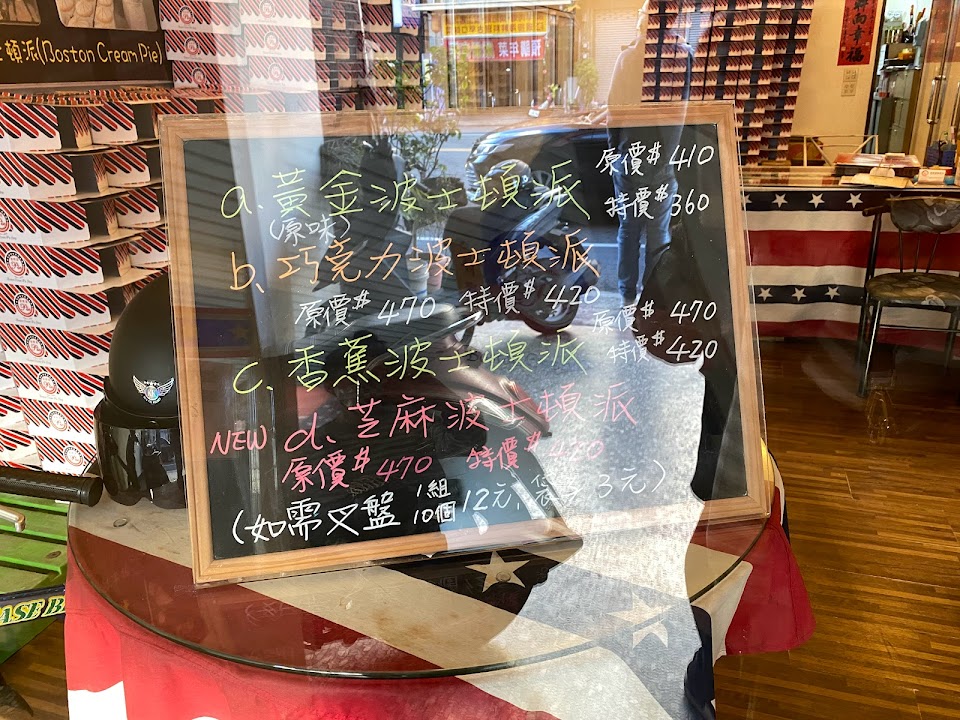 頓派(Boston Cream Pie)
a. 黃金波士頓派 原價$410
(原味) 特價$360
b. 巧克力波士頓派
原價$470 特價$420
c. 香蕉波士頓派 原價$470
特價$420
NEW d. 芝麻波士頓派
原價$470 特價$420
(如需叉盤 1組10個 12元, 袋子3元)